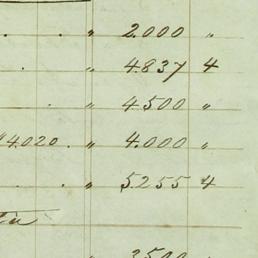 . . " 2.000 "
. " 4.837 4
. " 4500 "
"4.020 . " 4.000 "
. . " 5255 4
3500 "